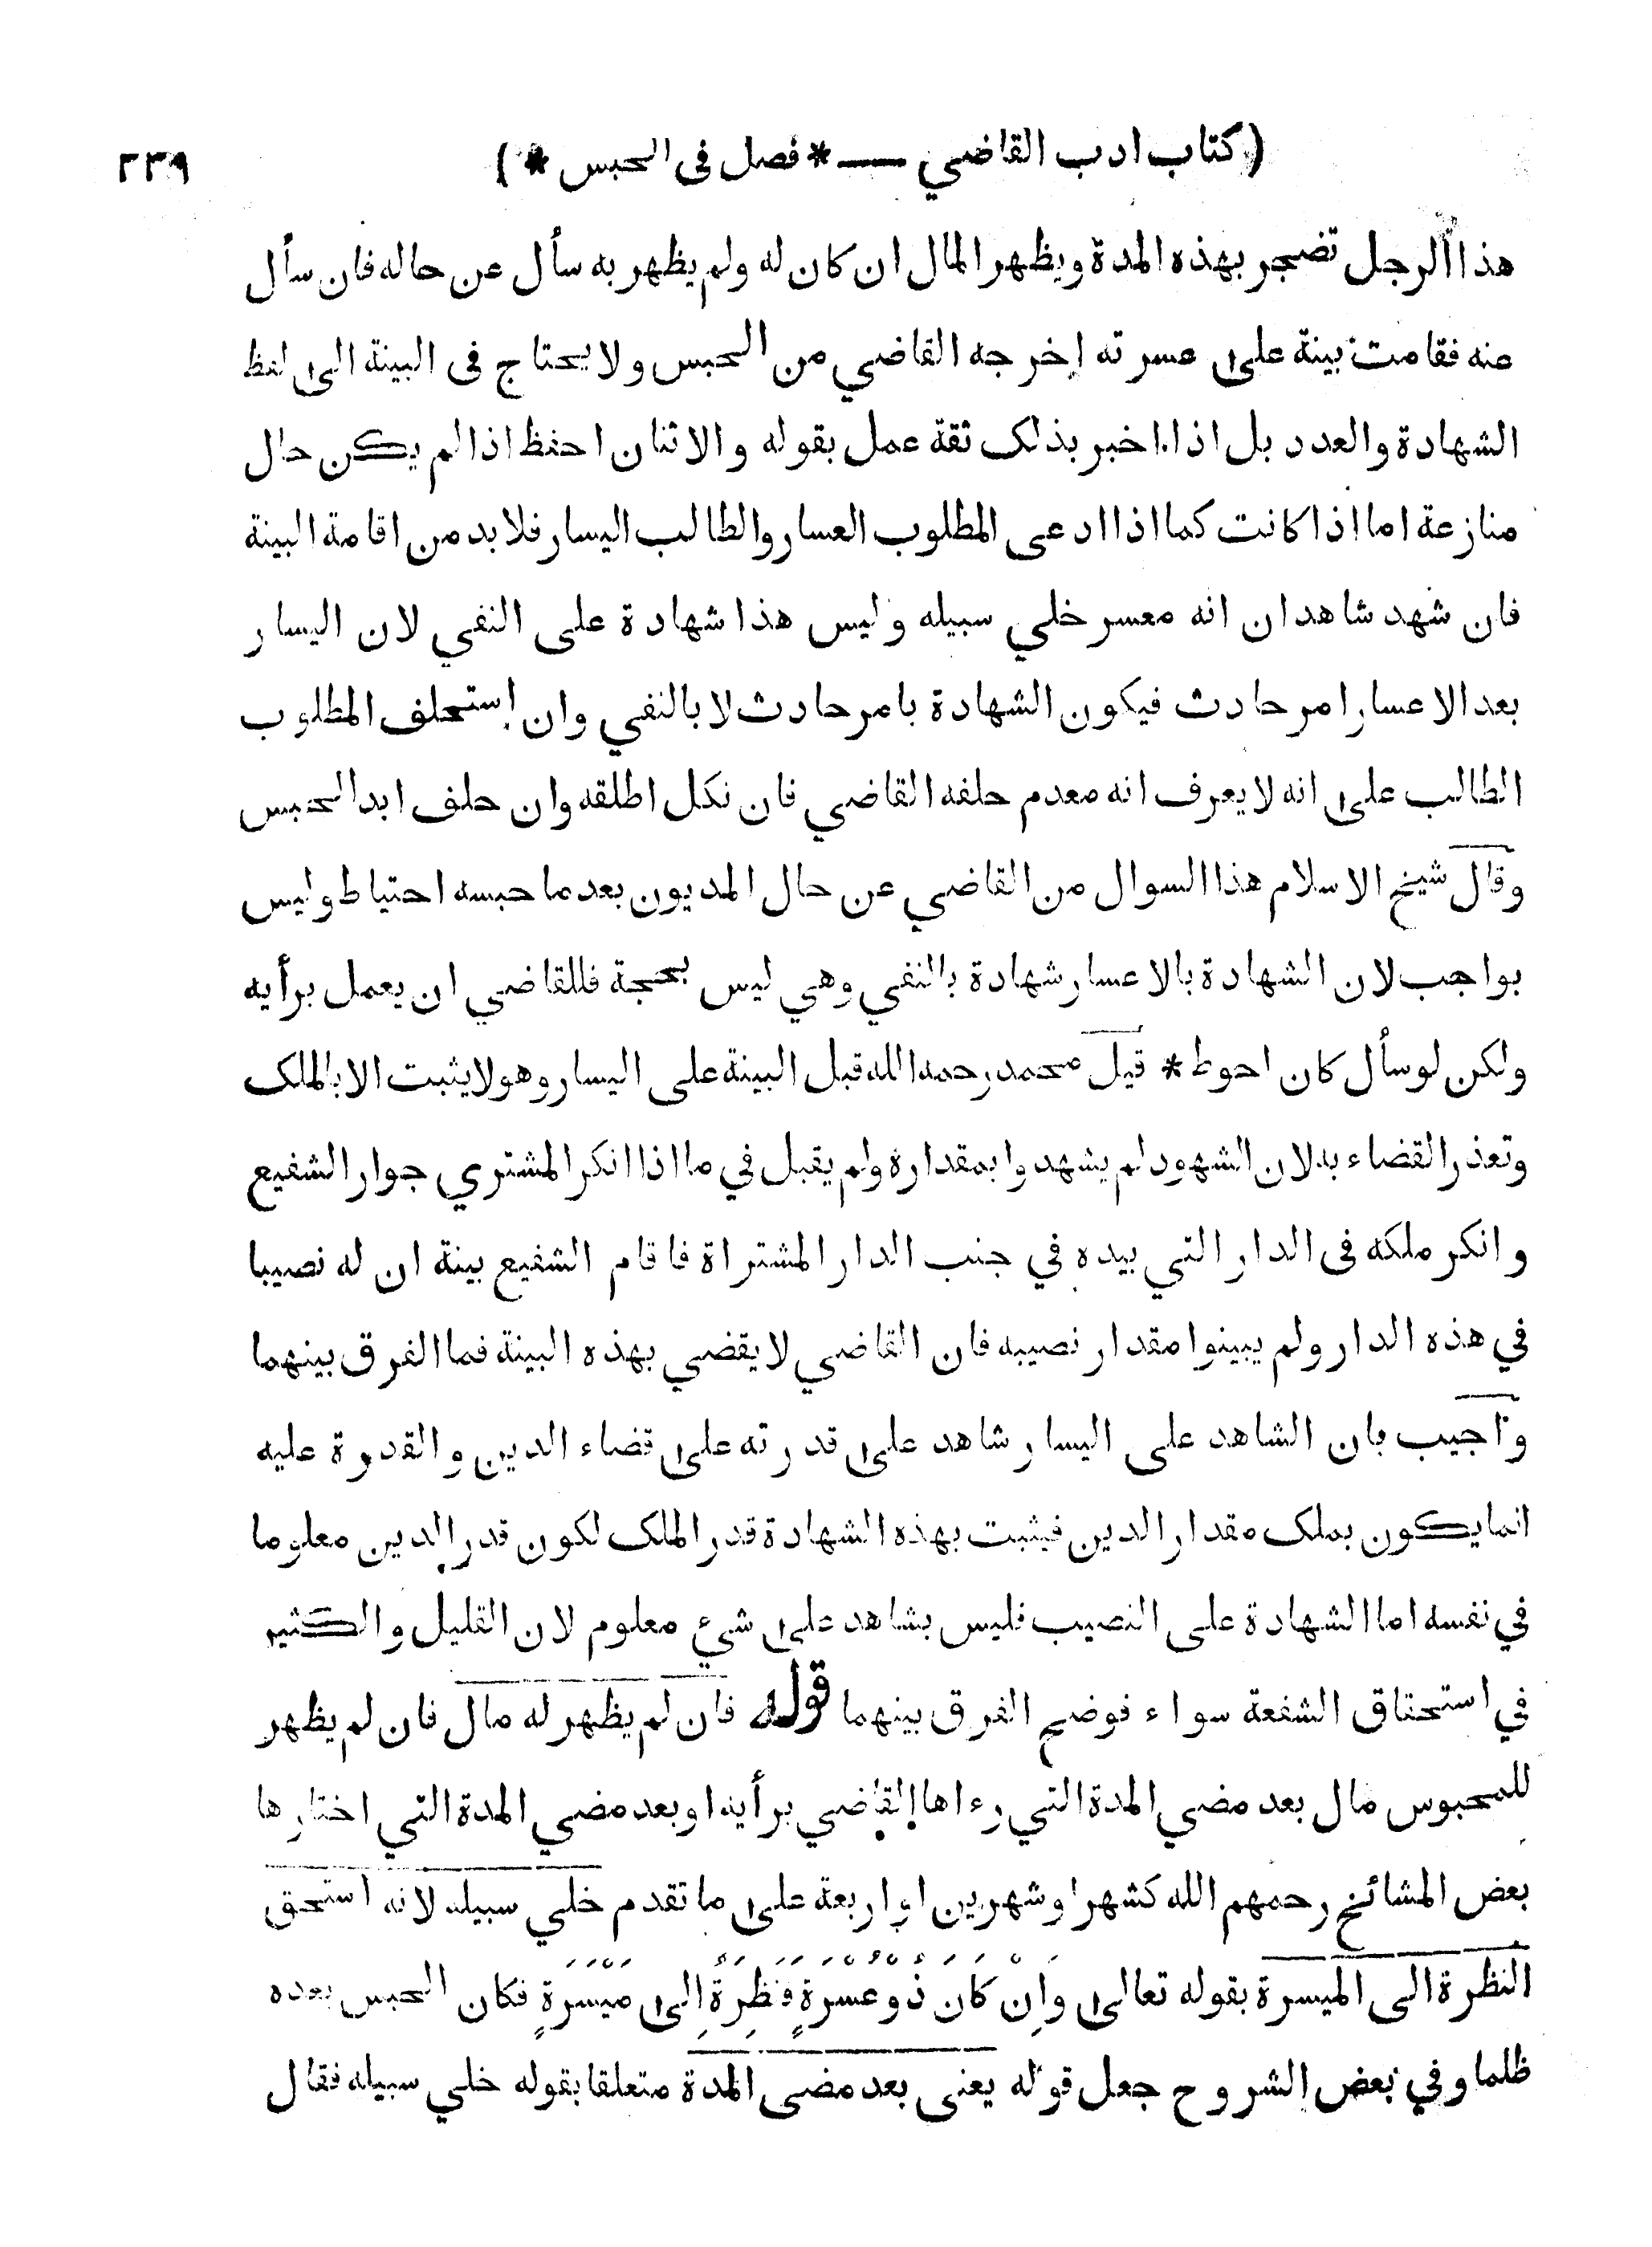 (كتاب ادب القاضي — * فصل فى الحبس *)
٢٣٩
هذا الرجل تضجر بهذه المدة ويظهر المال ان كان له ولم يظهر به سأل عن حاله فان سأل
عنه فقامت بينة على عسرته إخرجه القاضي من الحبس ولا يحتاج فى البينة الى لفظ
الشهادة والعدد بل اذا اخبر بذلك ثقة عمل بقوله والاثنان احفظ اذا لم يكن حال
منازعة اما اذا كانت كما اذا ادعى المطلوب العسار والطالب اليسار فلا بد من اقامة البينة
فان شهد شاهدان انه معسر خلي سبيله وليس هذا شهادة على النفي لان اليسار
بعد الاعسار امر حادث فيكون الشهادة بامر حادث لا بالنفي وان إستحلف المطلوب
الطالب على انه لا يعرف انه معدم حلفه القاضي فان نكل اطلقه وان حلف ابد الحبس
وقال شيخ الاسلام هذا السوال من القاضي عن حال المديون بعد ما حبسه احتياط وليس
بواجب لان الشهادة بالاعسار شهادة بالنفي وهي ليس بحجة فللقاضي ان يعمل برأيه
ولكن لو سأل كان احوط * قيل محمد رحمه الله قبل البينة على اليسار وهو لا يثبت الا بالملك
وتعذر القضاء به لان الشهود لم يشهدوا بمقداره ولم يقبل في ما اذا انكر المشتري جوار الشفيع
وانكر ملكه فى الدار التي بيده في جنب الدار المشتراة فاقام الشفيع بينة ان له نصيبا
في هذه الدار ولم يبينوا مقدار نصيبه فان القاضي لا يقضي بهذه البينة فما الفرق بينهما
وآجيب بان الشاهد على اليسار شاهد على قدرته على قضاء الدين والقدرة عليه
انما يكون بملك مقدار الدين فيثبت بهذه الشهادة قدر الملك لكون قدر الدين معلوما
في نفسه اما الشهادة على النصيب فليس بشاهد على شيء معلوم لان القليل والكثير
في استحقاق الشفعة سواء فوضح الفرق بينهما قوله فان لم يظهر له مال فان لم يظهر
للمحبوس مال بعد مضي المدة التي رءاها القاضي برأيه او بعد مضي المدة التي اختارها
بعض المشائخ رحمهم الله كشهر او شهرين او اربعة على ما تقدم خلي سبيله لانه استحق
النظرة الى الميسرة بقوله تعالى وَاِنْ كَانَ ذُوْ عُسْرَةٍ فَنَظِرَةٌ اِلى مَيْسَرَةٍ فكان الحبس بعده
ظلما وفي بعض الشروح جعل قوله يعنى بعد مضى المدة متعلقا بقوله خلي سبيله فقال